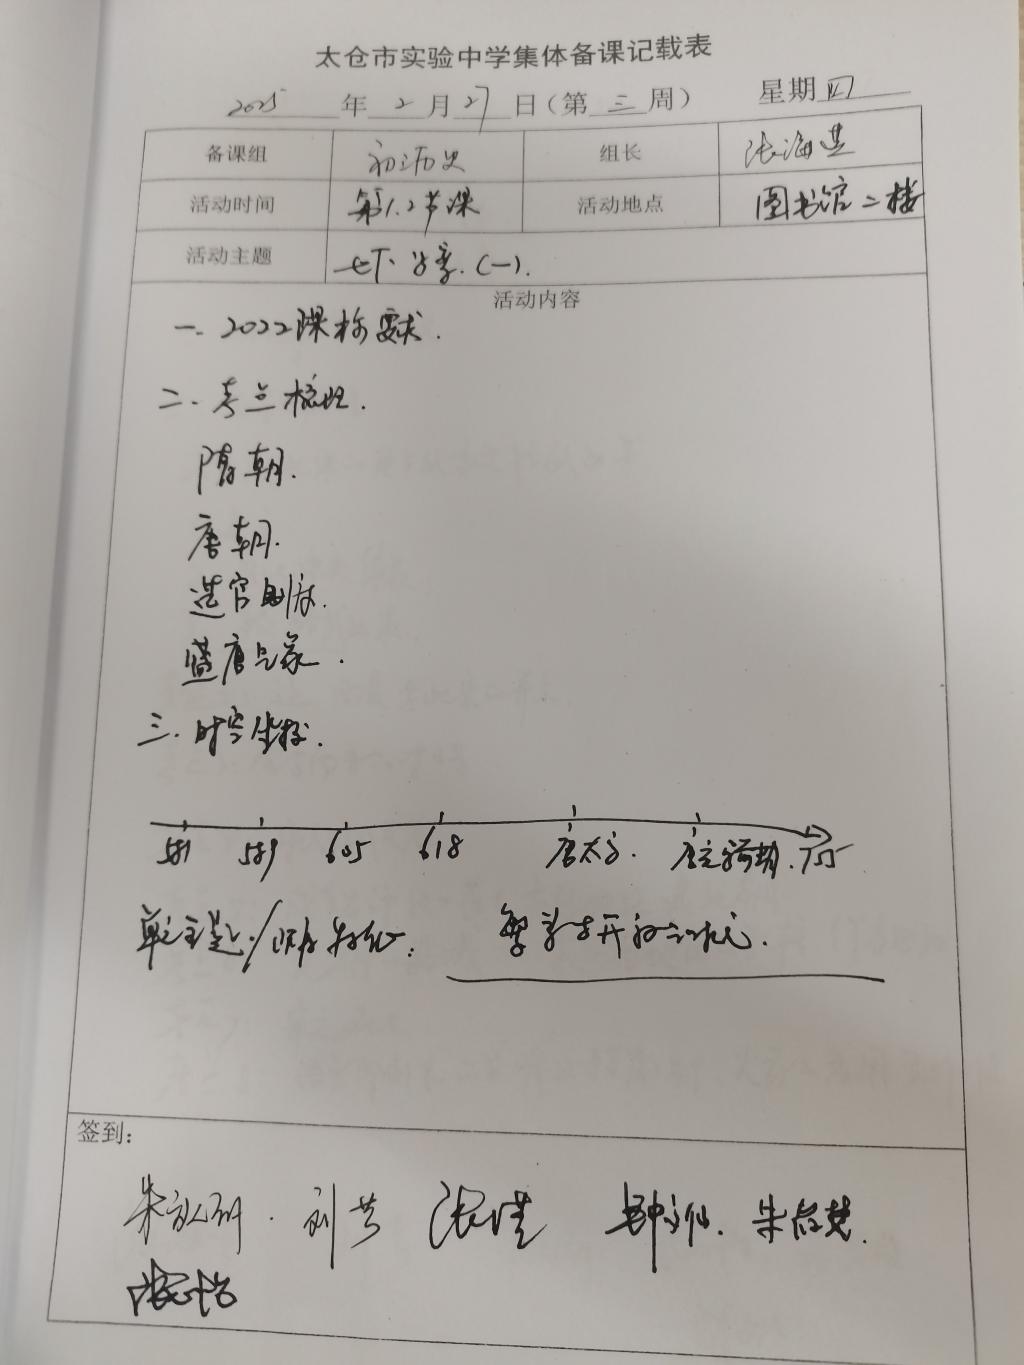 太仓市实验中学集体备课记载表
2025 年 2 月 27 日（第 三 周） 星期 四
备课组 初三历史 组长 张海洪
活动时间 第1.2节课 活动地点 图书馆二楼
活动主题 七下 (一).
活动内容
一. 2022课标要求.
二. 考点梳理.
隋朝.
唐朝.
选官制度.
盛唐气象.
三. 时空坐标.
581 589 605 618 唐太宗. 唐玄宗前期. 755
单元主题/阶段特征: 繁荣与开放的时代.
签到: